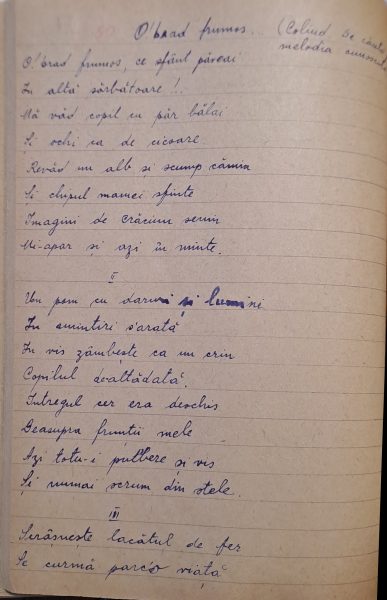 O! brad frumos... (Colind se cântă
melodia cunoscută
O! brad frumos, ce sfânt păreai
În altă sărbătoare!!
Mă văd copil cu păr bălai
Și ochi ca de cicoare
Revăd un alb si scump cămin
Si chipul mamei sfinte
Imagini de Crăciun senin
Mi-apar și azi în minte.
II
Un pom cu daruri și lumini
În amintiri s'arată
În vis zâmbește ca un crin
Copilul dealtădată.
Întregul cer era deschis
Deasupra frunții mele
Azi totu-i pulbere și vis
Și numai scrum din stele.
III
Scrâșnește lacătul de fer
Se curmă parc'o viață